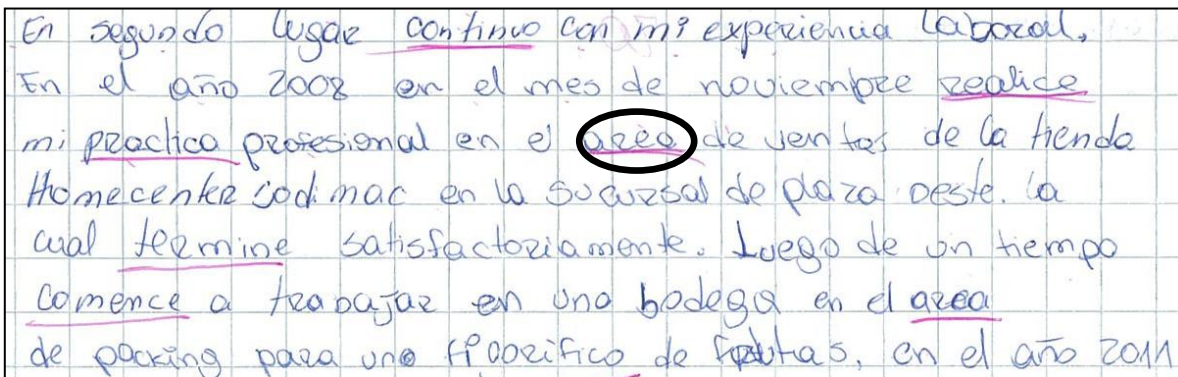 En segundo lugar continuo con mi experiencia laboral.
En el año 2008 en el mes de noviembre realice
mi practica profesional en el area de ventas de la tienda
Homecenter sodimac en la sucursal de plaza oeste. la
cual termine satisfactoriamente. Luego de un tiempo
comence a trabajar en una bodega en el area
de packing para uno de frutas, en el año 2011